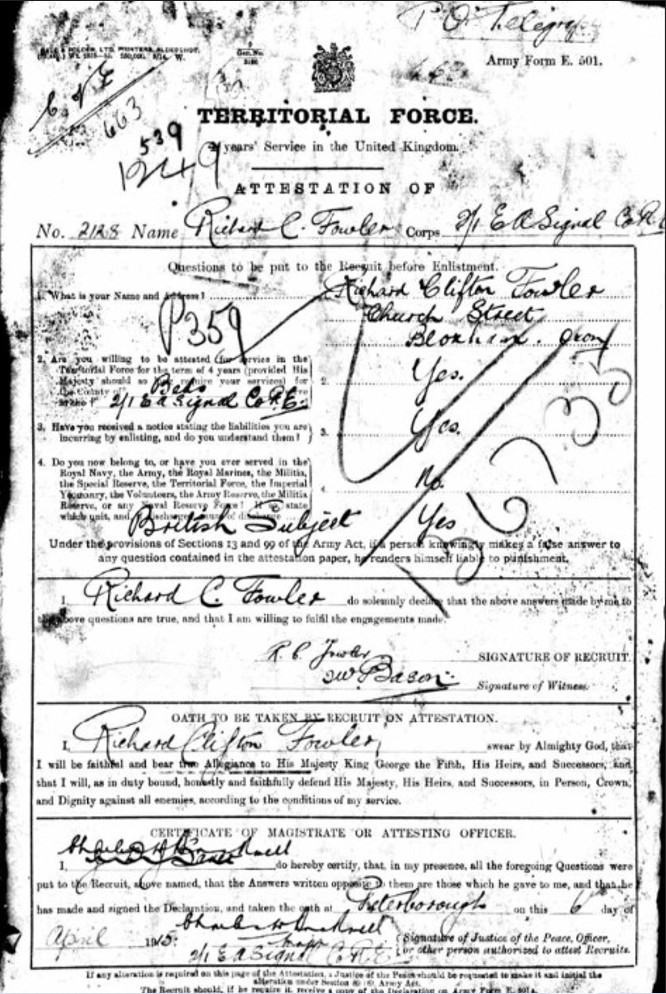 P.O. Telegraph
GALE & POLDEN, LTD. PRINTERS, ALDERSHOT.
Army Form E. 501.
663
539
1249
TERRITORIAL FORCE.
4 years' Service in the United Kingdom.
ATTESTATION OF
No. 2128 Name Richard C. Fowler Corps 2/1 E A Signal Co. R.E
Questions to be put to the Recruit before Enlistment.
1. What is your Name and Address? Richard Clifton Fowler
Church Street
P359
2. Are you willing to be attested for service in the Yes.
Territorial Force for the term of 4 years (provided His
Majesty should so long require your services) for
the County of Beds
2/1 E A Signal Co R.E.
3. Have you received a notice stating the liabilities you are
incurring by enlisting, and do you understand them? 3. Yes.
4. Do you now belong to, or have you ever served in the
Royal Navy, the Army, the Royal Marines, the Militia,
the Special Reserve, the Territorial Force, the Imperial
Yeomanry, the Volunteers, the Army Reserve, the Militia
Reserve, or any Naval Reserve Force? If so state
which unit, and cause of discharge No.
British Subject Yes
Under the provisions of Sections 13 and 99 of the Army Act, if a person knowingly makes a false answer to
any question contained in the attestation paper, he renders himself liable to punishment.
I, Richard C. Fowler do solemnly declare that the above answers made by me to
the above questions are true, and that I am willing to fulfil the engagements made.
R. C. Fowler SIGNATURE OF RECRUIT.
W. Bason Signature of Witness.
OATH TO BE TAKEN BY RECRUIT ON ATTESTATION.
I, Richard Clifton Fowler, swear by Almighty God, that
I will be faithful and bear true Allegiance to His Majesty King George the Fifth, His Heirs, and Successors, and
that I will, as in duty bound, honestly and faithfully defend His Majesty, His Heirs, and Successors, in Person, Crown,
and Dignity against all enemies, according to the conditions of my service.
CERTIFICATE OF MAGISTRATE OR ATTESTING OFFICER.
I, do hereby certify, that, in my presence, all the foregoing Questions were
put to the Recruit, above named, that the Answers written opposite to them are those which he gave to me, and that he
has made and signed the Declaration, and taken the oath at Peterborough on this 6 day of
April 1915.
2/1 E A Signal C. R.E.
Signature of Justice of the Peace, Officer,
or other person authorized to attest Recruits.
If any alteration is required on this page of the Attestation, a Justice of the Peace should be requested to make it and initial the
alteration under Section 80 (6), Army Act.
The Recruit should, if he require it, receive a copy of the Declaration on Army Form E. 501a.